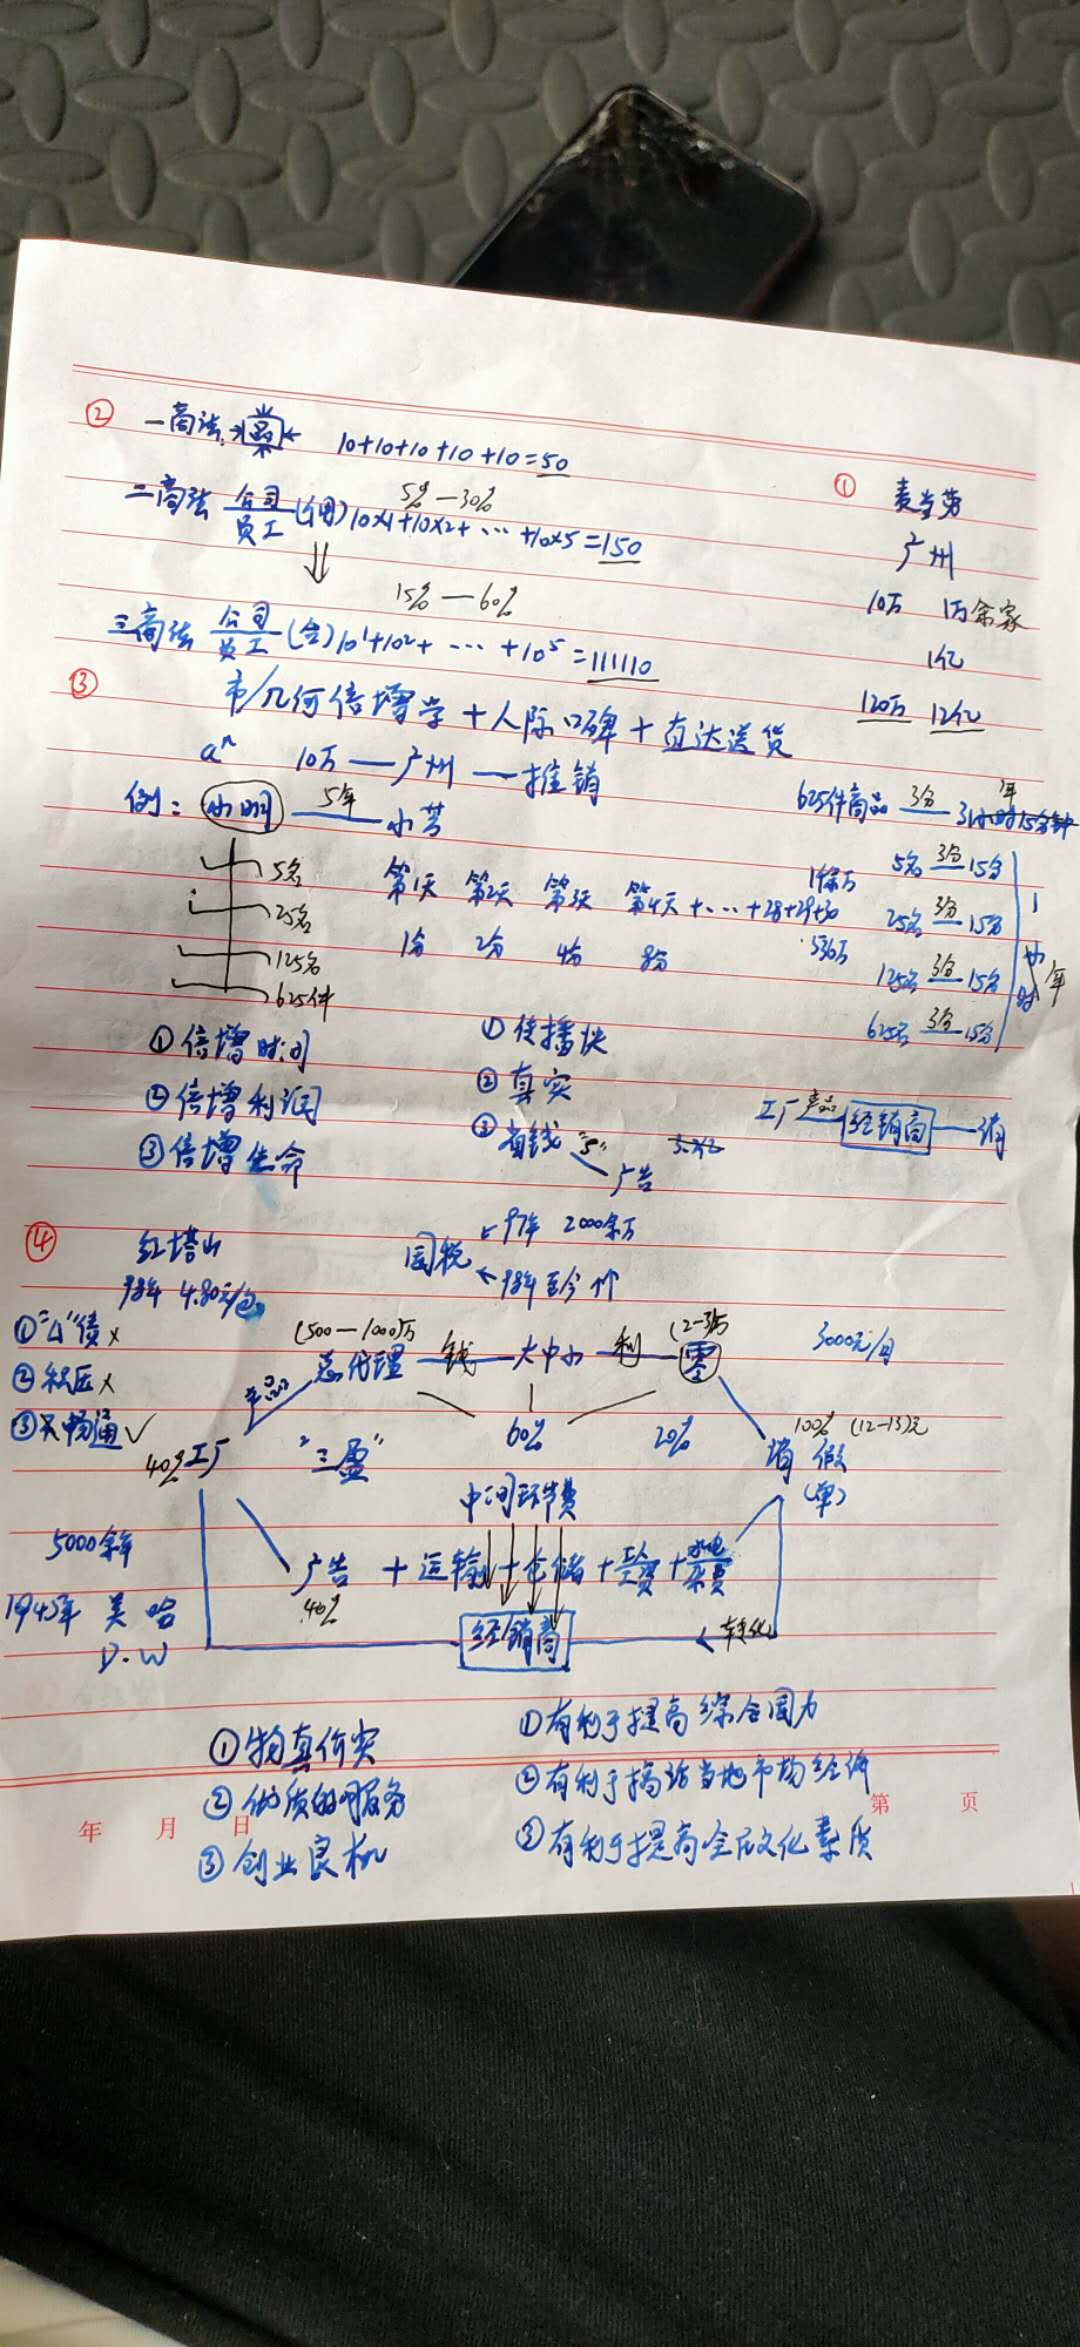 ② 一商法 10+10+10+10+10=50
5% — 30%
二商法 公司/员工 (佣) 10×1+10×2+…+10×5=150
15% — 60%
三商法 公司/员工 (合) 10¹+10²+…+10⁵=111110
① 麦当劳
广州
10万 1万余家
1亿
120万 12亿
③ 市/几何倍增学+人际口碑+直达送货
aⁿ 10万—广州—推销
例: 小明 5年 小芳
5名
25名
125名
625件
第1天 第2天 第3天 第4天+…+28+29+30
1份 2份 4份 8份 536万
625件商品 3分 3小时15分钟 年
5名 3分 15分
25名 3分 15分
125名 3分 15分
625名 3分 15分
1小时 年
①倍增时间
②倍增利润
③倍增生命
①传播快
②真实
③省钱 "5"
广告
工厂 产品 经销商 — 消
④ 红塔山
93年 4.80元/包
国税 97年 2000余万
98年至今 个
①"Δ"债 ×
②积压 ×
③不畅通 ✓
(500—1000)万 (2-3)万 3000元/月
总代理 钱 大中小 利 零
产品
60% 20% 100% (12-13)元
40% 工厂 "三盈" 消 假
(单)
中间环节费
5000余年
广告+运输+仓储+工资+水电杂费
40%
1945年 美 哈
D.W
经销商 转化
①物真价实
②优质的服务
③创业良机
①有利于提高综合国力
②有利于搞活当地市场经济
③有利于提高全民文化素质
年 月 日 第 页